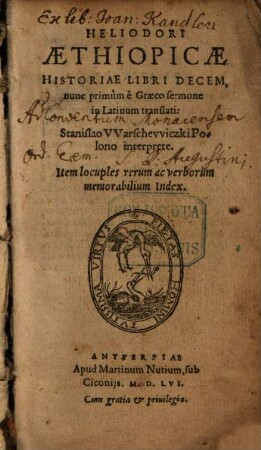 Ex lib: Joan: Kandleri
HELIODORI
ÆTHIOPICÆ
HISTORIAE LIBRI DECEM,
nunc primùm è Græco sermone
in Latinum translati:
Ad Conventum Monacensem
Stanislao VVarscheuviczki Po-
lono interprete.
Ord. Erem. S. P. Augustini
Item locuples rerum ac verborum
memorabilium Index.
PIETAS HOMINI TVTISSIMA VIRTVS
ANTVERPIAE
Apud Martinum Nutium, sub
Ciconijs. M. D. LVI.
Cum gratia & priuilegio.